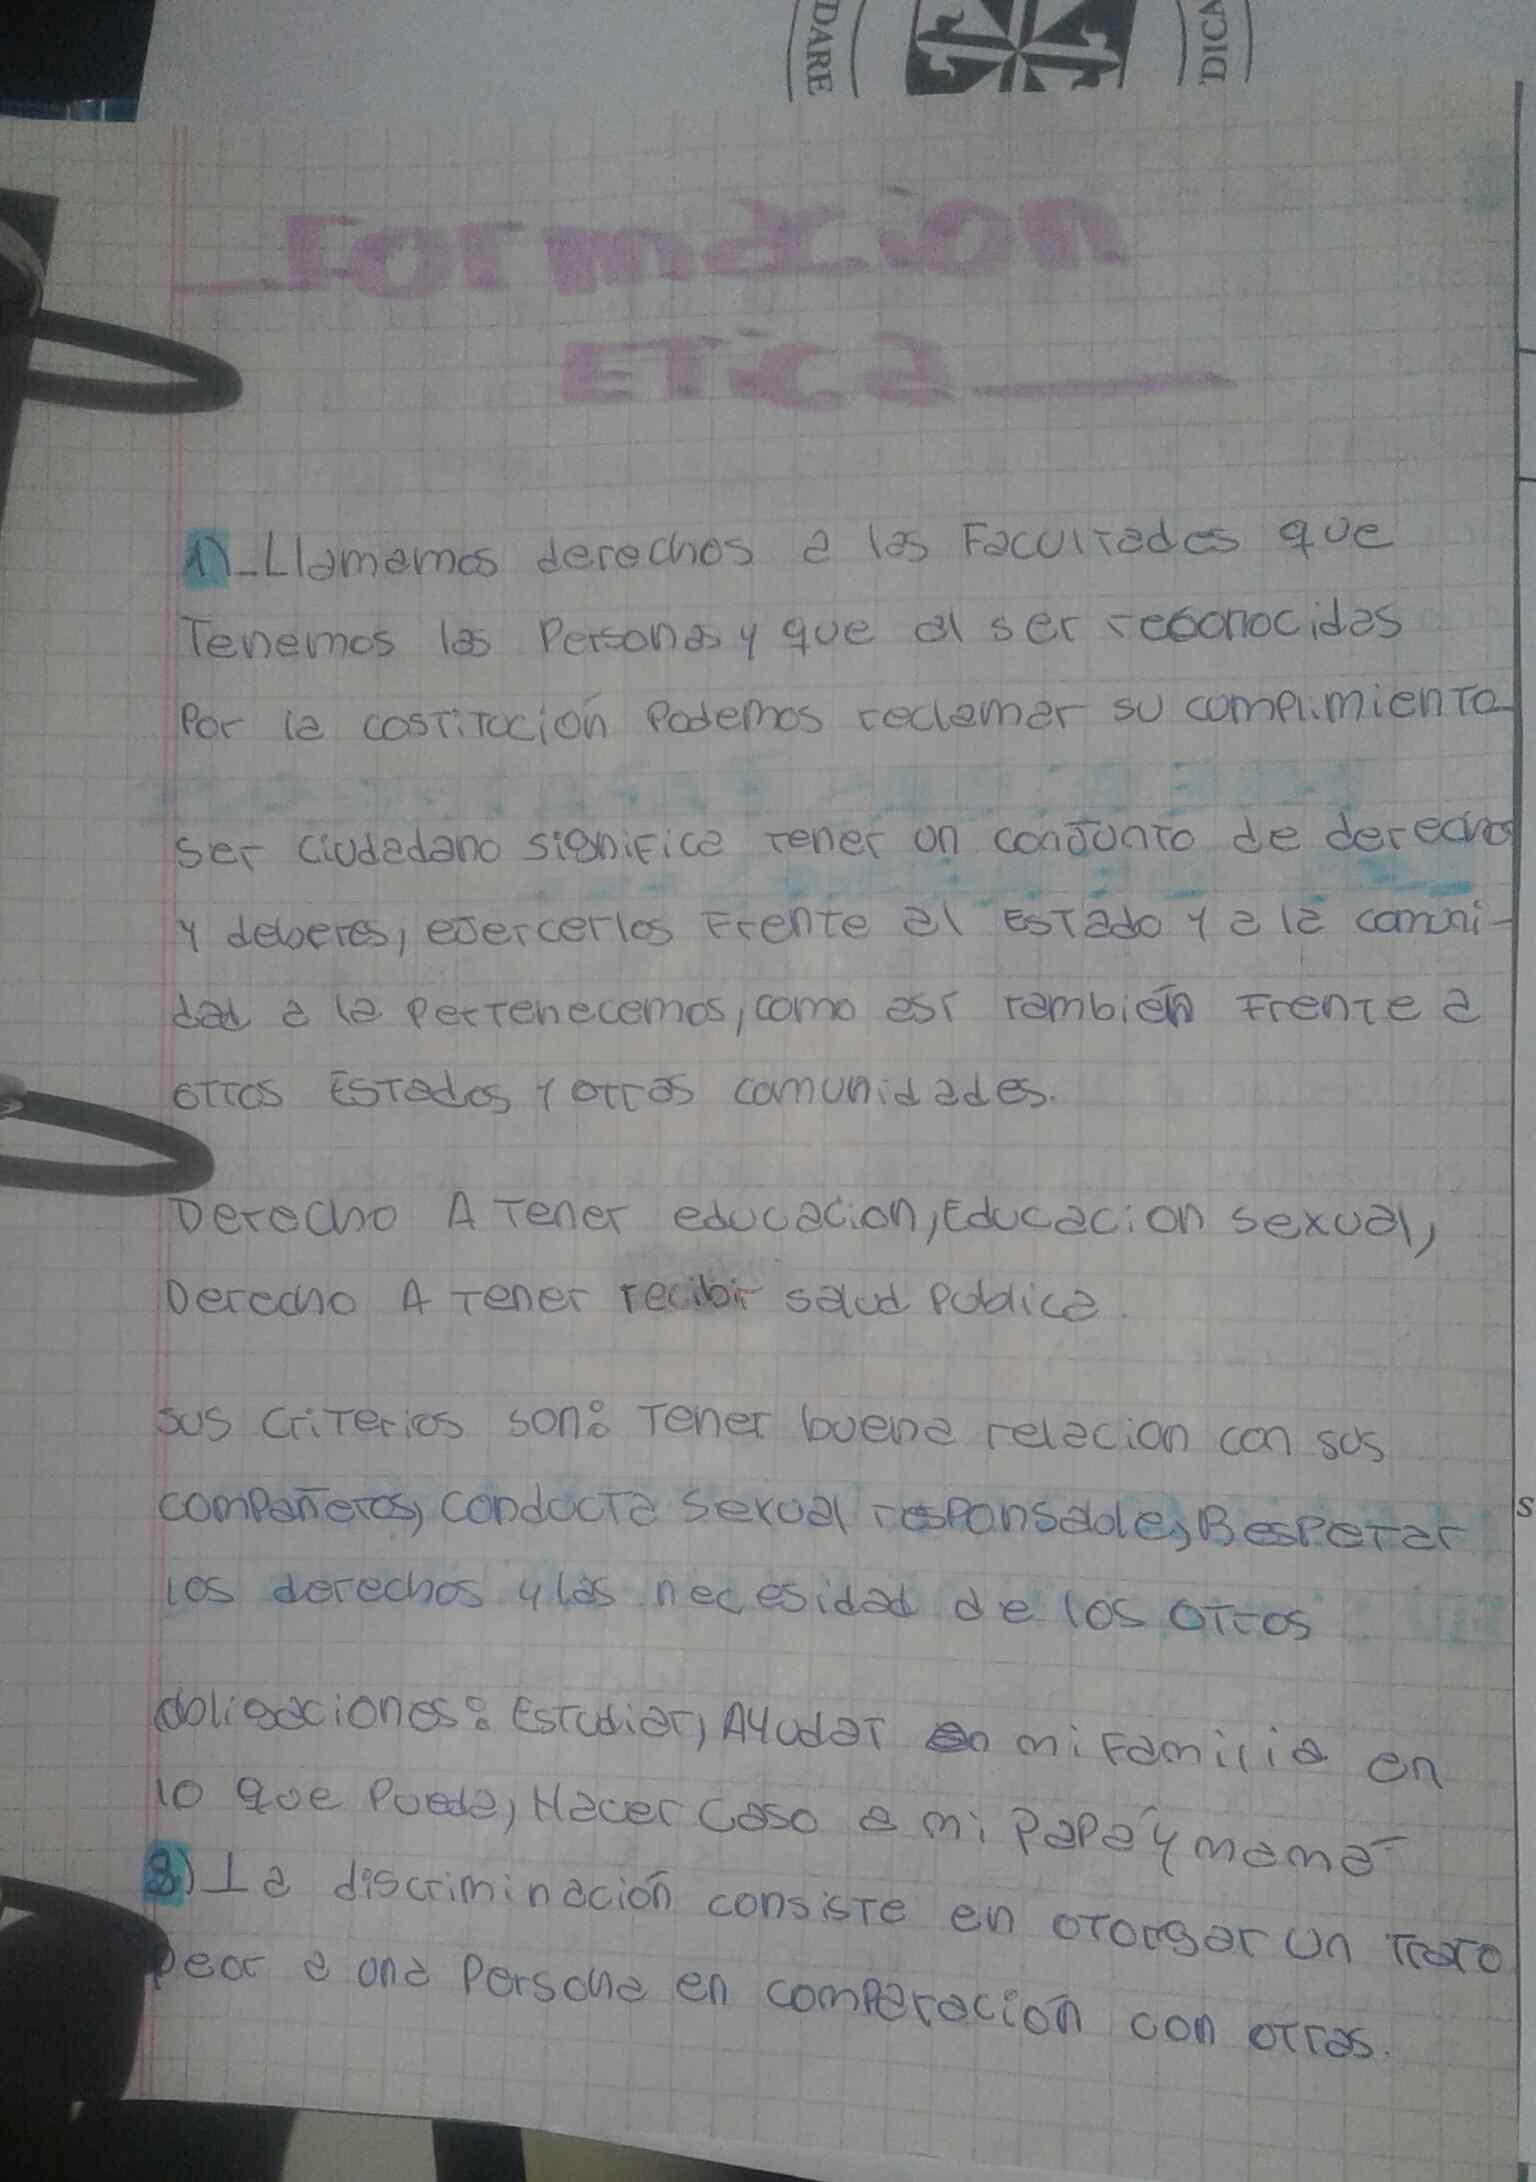 DARE
DICA
Formacion
ETica
1)_Llamamos derechos a las Facultades que
Tenemos las Personas y que al ser reconocidas
Por la costitución Podemos reclamar su complimiento
ser ciudadano significa tener un conjunto de derechos
y deberes, ejercerlos Frente al Estado y a la comuni-
dad a la Pertenecemos, como así también Frente a
otros Estados y otras comunidades.
Derecho A Tener educacion, Educacion sexual,
Derecho A Tener recibir salud Publica.
sus criterios son: Tener buena relacion con sus
compañeros, conducta sexual responsable, Respetar
los derechos y las necesidad de los otros
obligaciones: Estudiar, Ayudar en mi Familia en
lo que Pueda, Hacer caso a mi Papá y mamá
3) La discriminación consiste en otorgar un Trato
Peor a una Persona en comparación con otras.
s